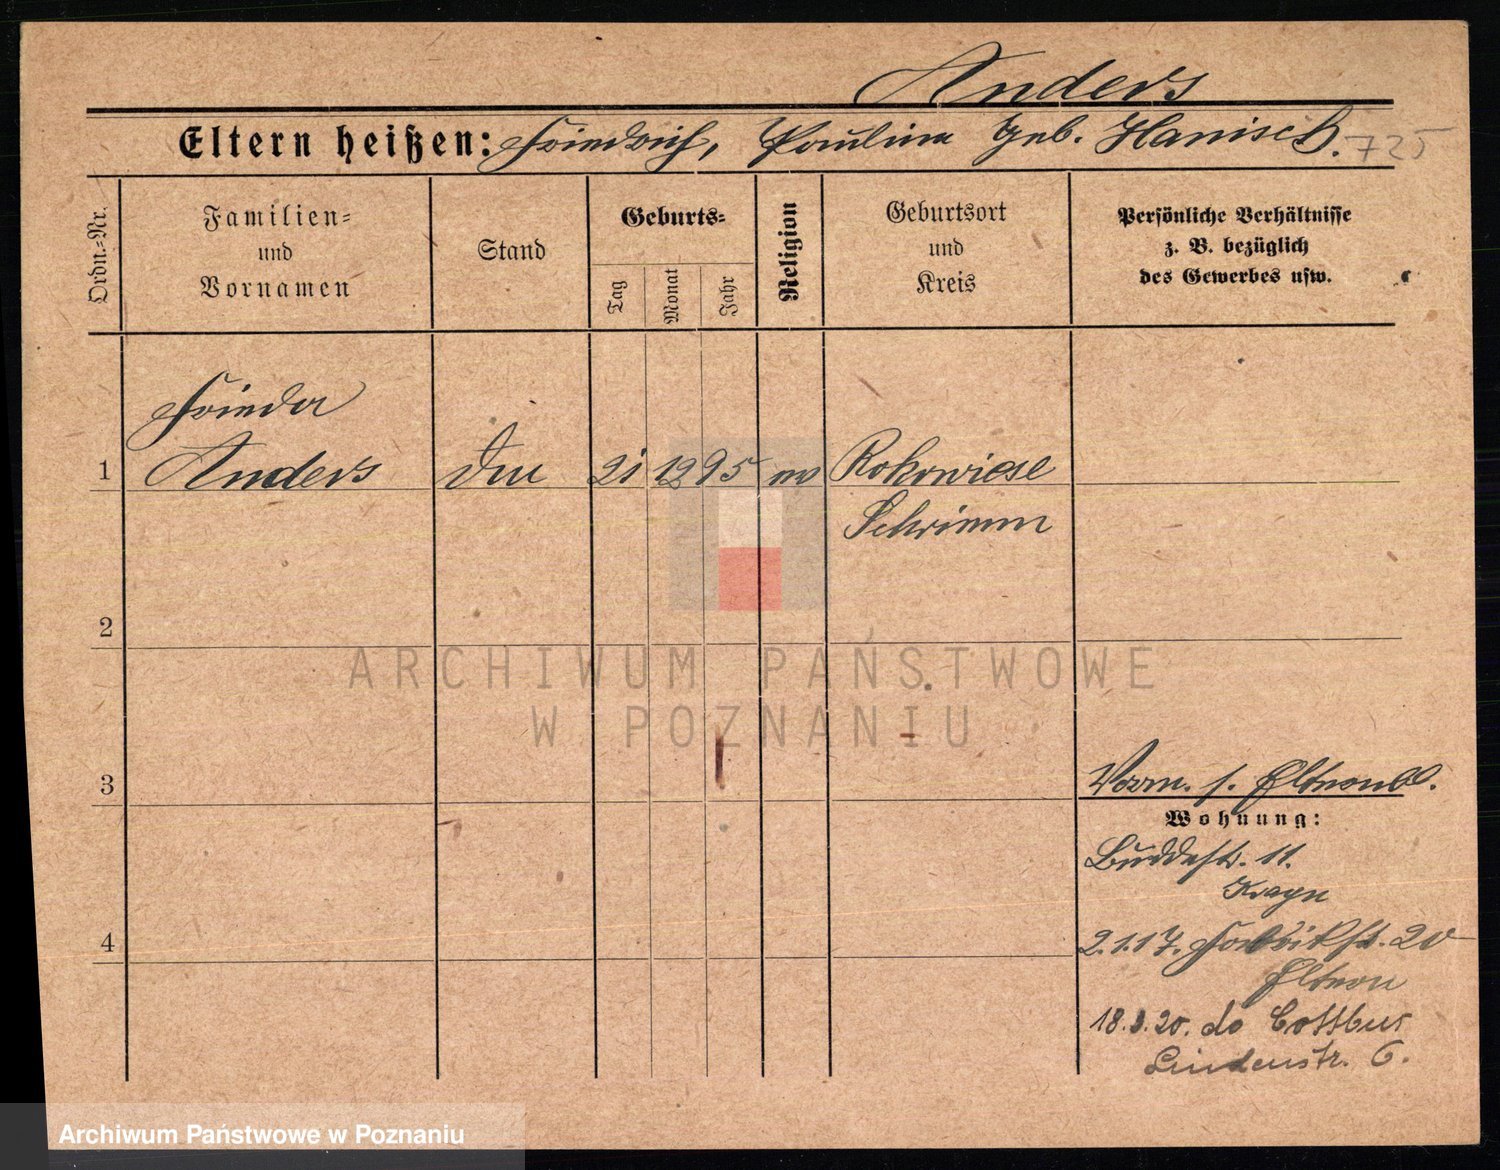 Anders
Eltern heißen: Friedrich, Paulina geb. Hanisch. 725
Ordn.=Nr.
Familien=
und
Vornamen
Stand
Geburts=
Tag
Monat
Jahr
Religion
Geburtsort
und
Kreis
Persönliche Verhältnisse
z. B. bezüglich
des Gewerbes usw.
Frieda
1 Anders 21 12 95 Rokowiese
Schrimm
2
3
Verm. s. Elternbl.
Wohnung:
Buddestr. 11.
4
2.1.17. Fabrikstr. 20
Eltern
18. 20. do Cottbus
Lindenstr. 6.
ARCHIWUM PAŃSTWOWE
W POZNANIU
Archiwum Państwowe w Poznaniu